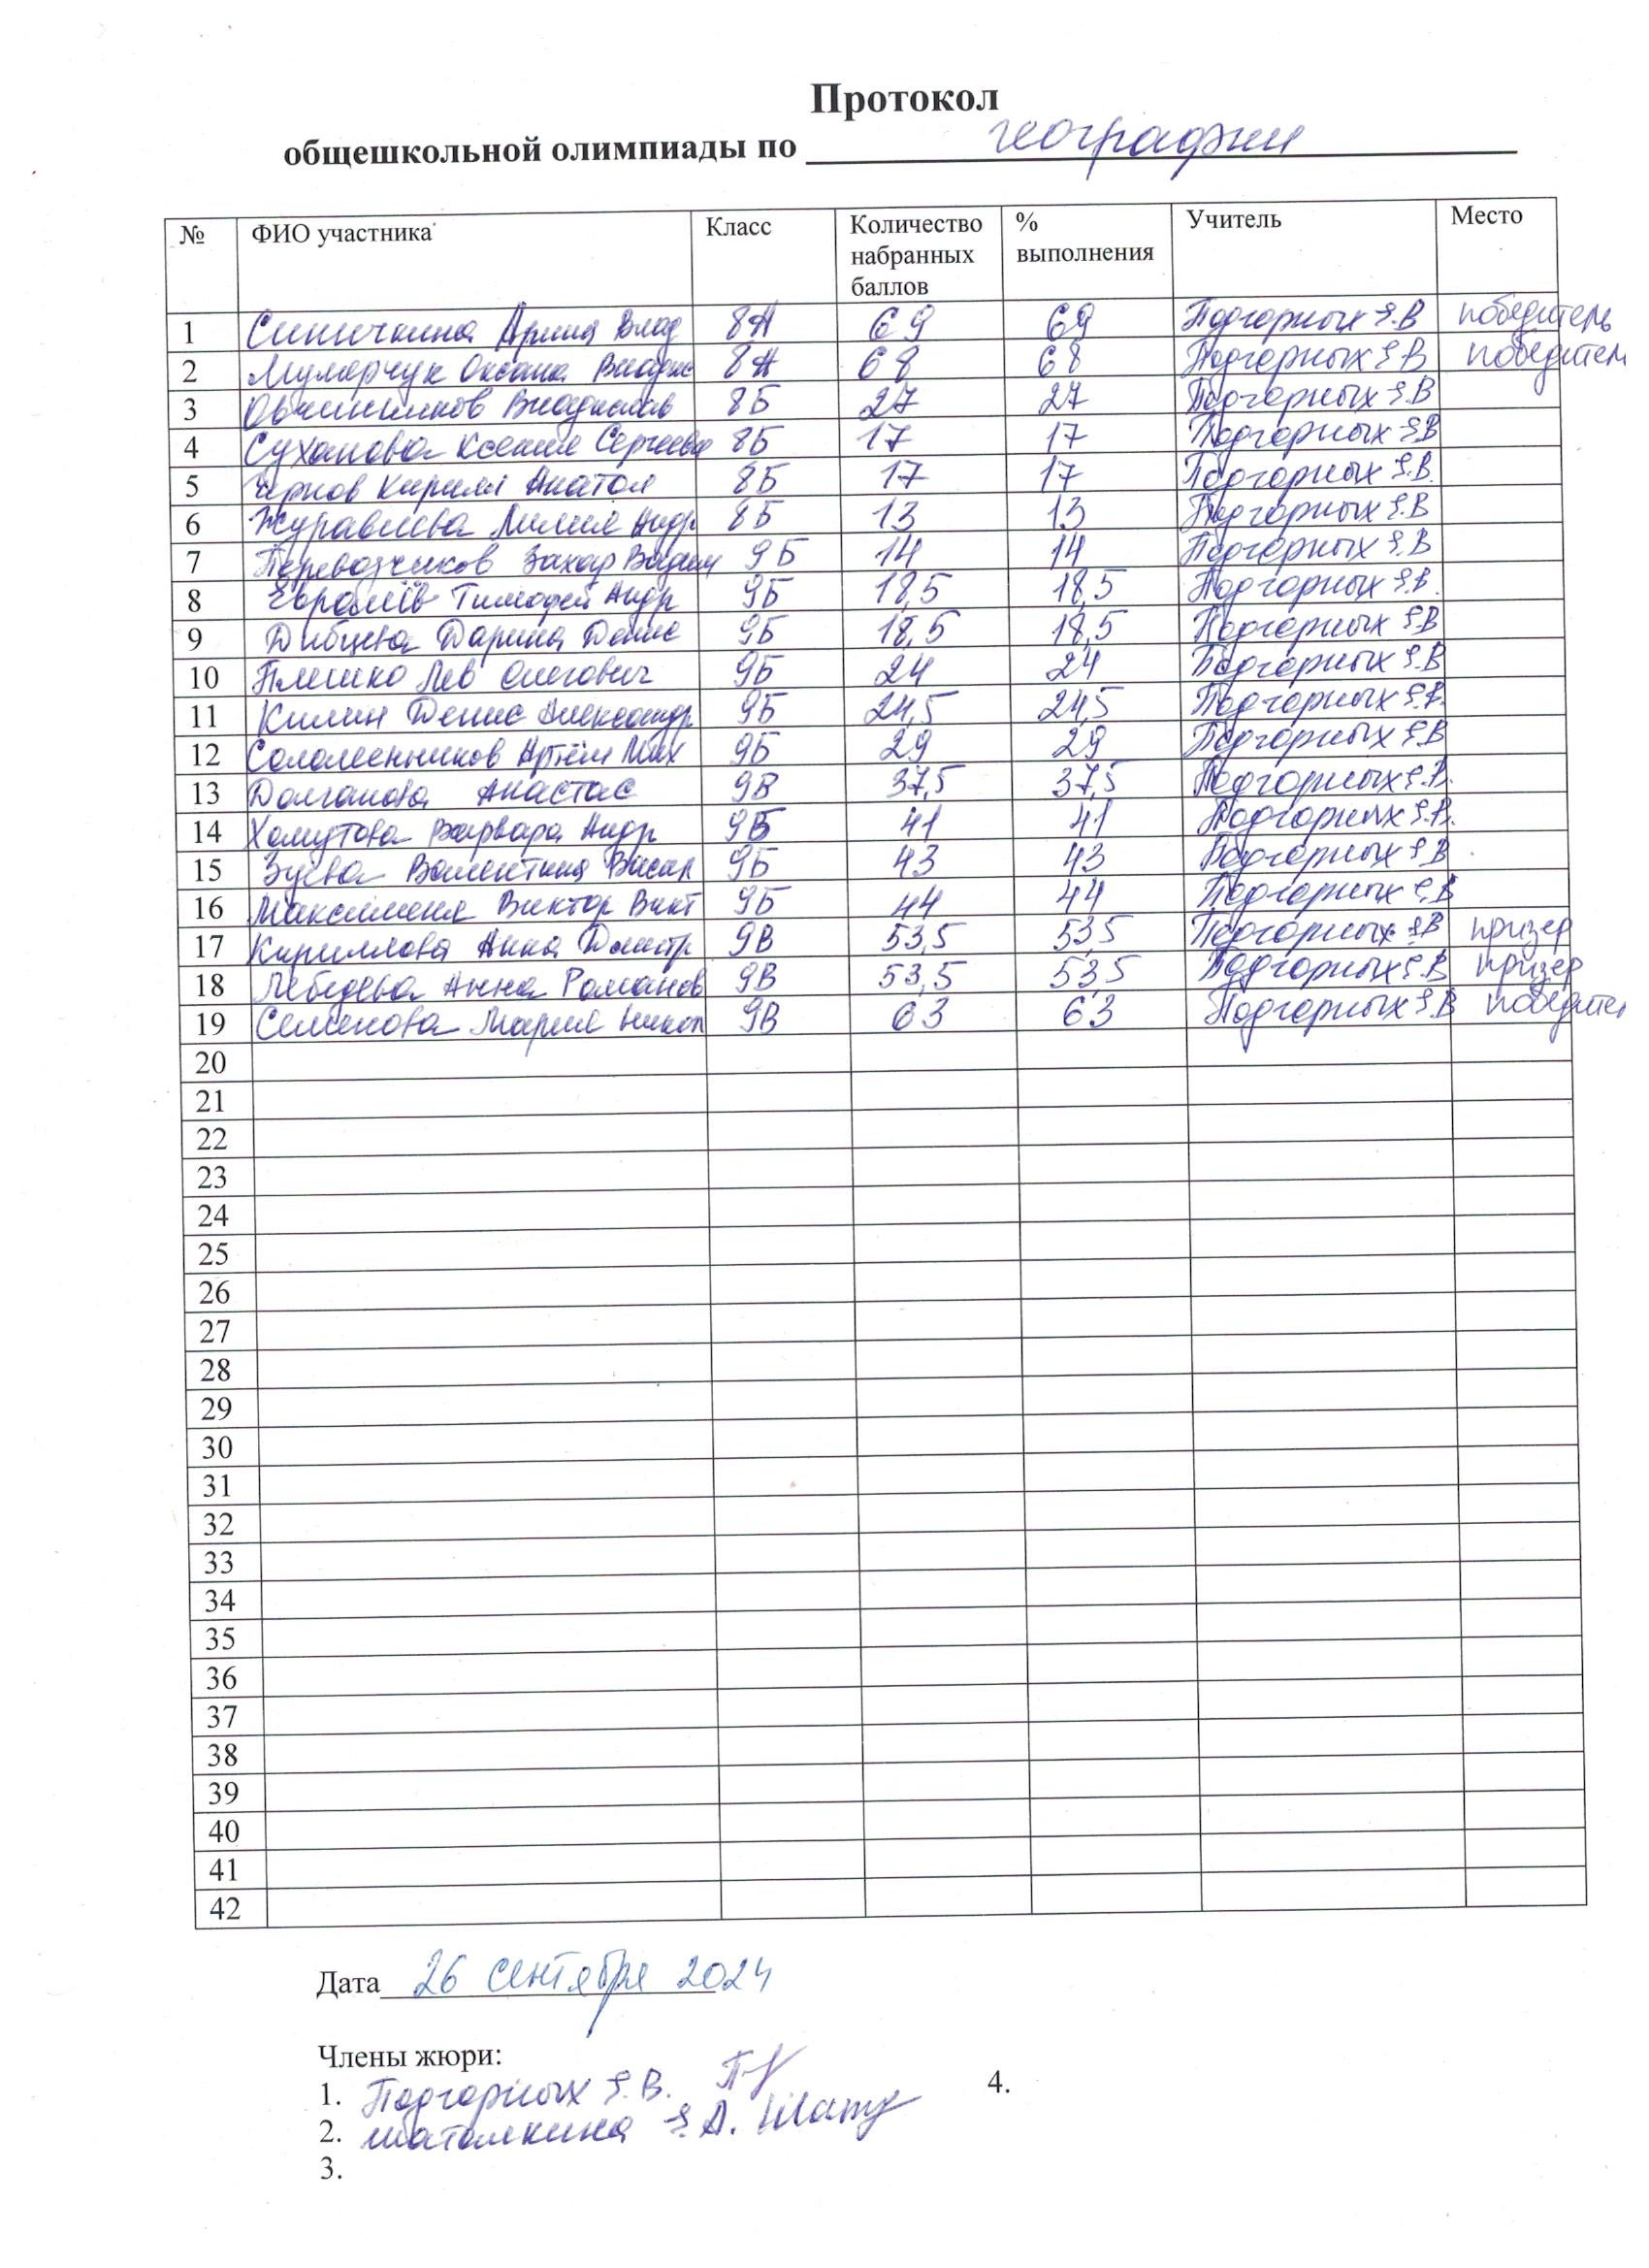 Протокол
общешкольной олимпиады по географии
№ ФИО участника Класс Количество набранных баллов % выполнения Учитель Место
1 Синичкина Арина Влад 8А 69 69 Подгорных Е.В победитель
2 Оксана 8А 68 68 Подгорных Е.В победител
3 Овчинников Владислав 8Б 27 27 Подгорных Е.В
4 Суханова Ксения Сергеевн 8Б 17 17 Подгорных Е.В
5 Чернов Кирилл Анатол 8Б 17 17 Подгорных Е.В.
6 Журавлева Лилия Андр 8Б 13 13 Подгорных Е.В
7 Перевозчиков Захар Вадим 9Б 14 14 Подгорных Е.В
8 Тимофей Андр 9Б 18,5 18,5 Подгорных Е.В.
9 Дарина Денис 9Б 18,5 18,5 Подгорных Е.В
10 Плешко Лев Олегович 9Б 24 24 Подгорных Е.В
11 Килин Денис Александр 9Б 24,5 24,5 Подгорных Е.В.
12 Соломенников Артём Мих 9Б 29 29 Подгорных Е.В
13 Долганова Анастас 9В 37,5 37,5 Подгорных Е.В.
14 Хомутова Варвара Андр 9Б 41 41 Подгорных Е.В.
15 Зуева Валентина Васил 9Б 43 43 Подгорных Е.В
16 Виктор Викт 9Б 44 44 Подгорных Е.В
17 Кириллова Анна Дмитр 9В 53,5 53,5 Подгорных Е.В призер
18 Лебедева Анна Романов 9В 53,5 53,5 Подгорных Е.В призер
19 Семенова Мария Никол 9В 63 63 Подгорных Е.В победител
20
21
22
23
24
25
26
27
28
29
30
31
32
33
34
35
36
37
38
39
40
41
42
Дата 26 сентября 2024
Члены жюри:
1. Подгорных Е.В. 4.
2. Шатомкина Е.А.
3.